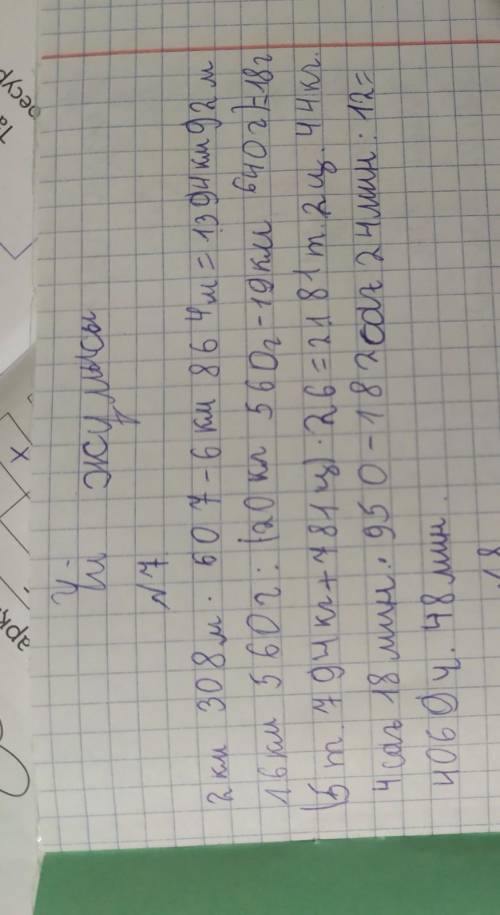 Үй жұмысы
№7
2 км 308 м · 607 - 6 км 864 м = 1394 км 92 м
16 км 560 г : (20 кг 560 г - 19 км 640 г) = 18 г
(5 т. 794 кг + 781 ц) · 26 = 2181 т. 2 ц. 44 кг.
4 сағ 18 мин · 950 - 182 сағ 24 мин : 12 =
4069 ч. 48 мин.
18
арқ
х
есур